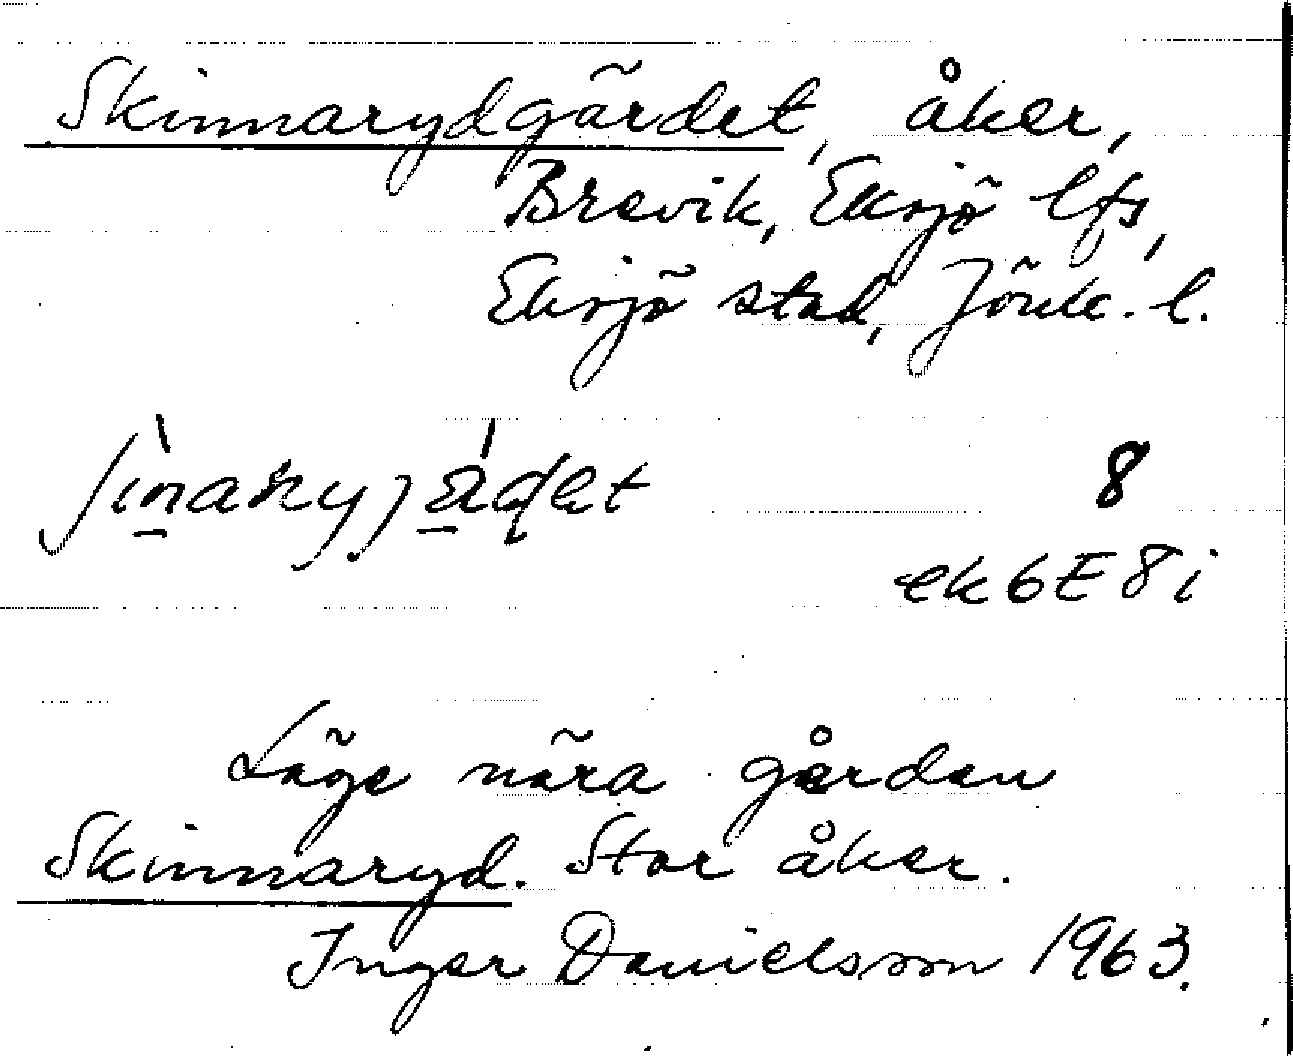 Skinnarydgärdet, åker,
Brevik, Eksjö lfs,
Eksjö stad, Jönk. l.
8
ek 6E 8i
Läge nära gården
Skinnaryd. Stor åker.
Inger Danielsson 1963.